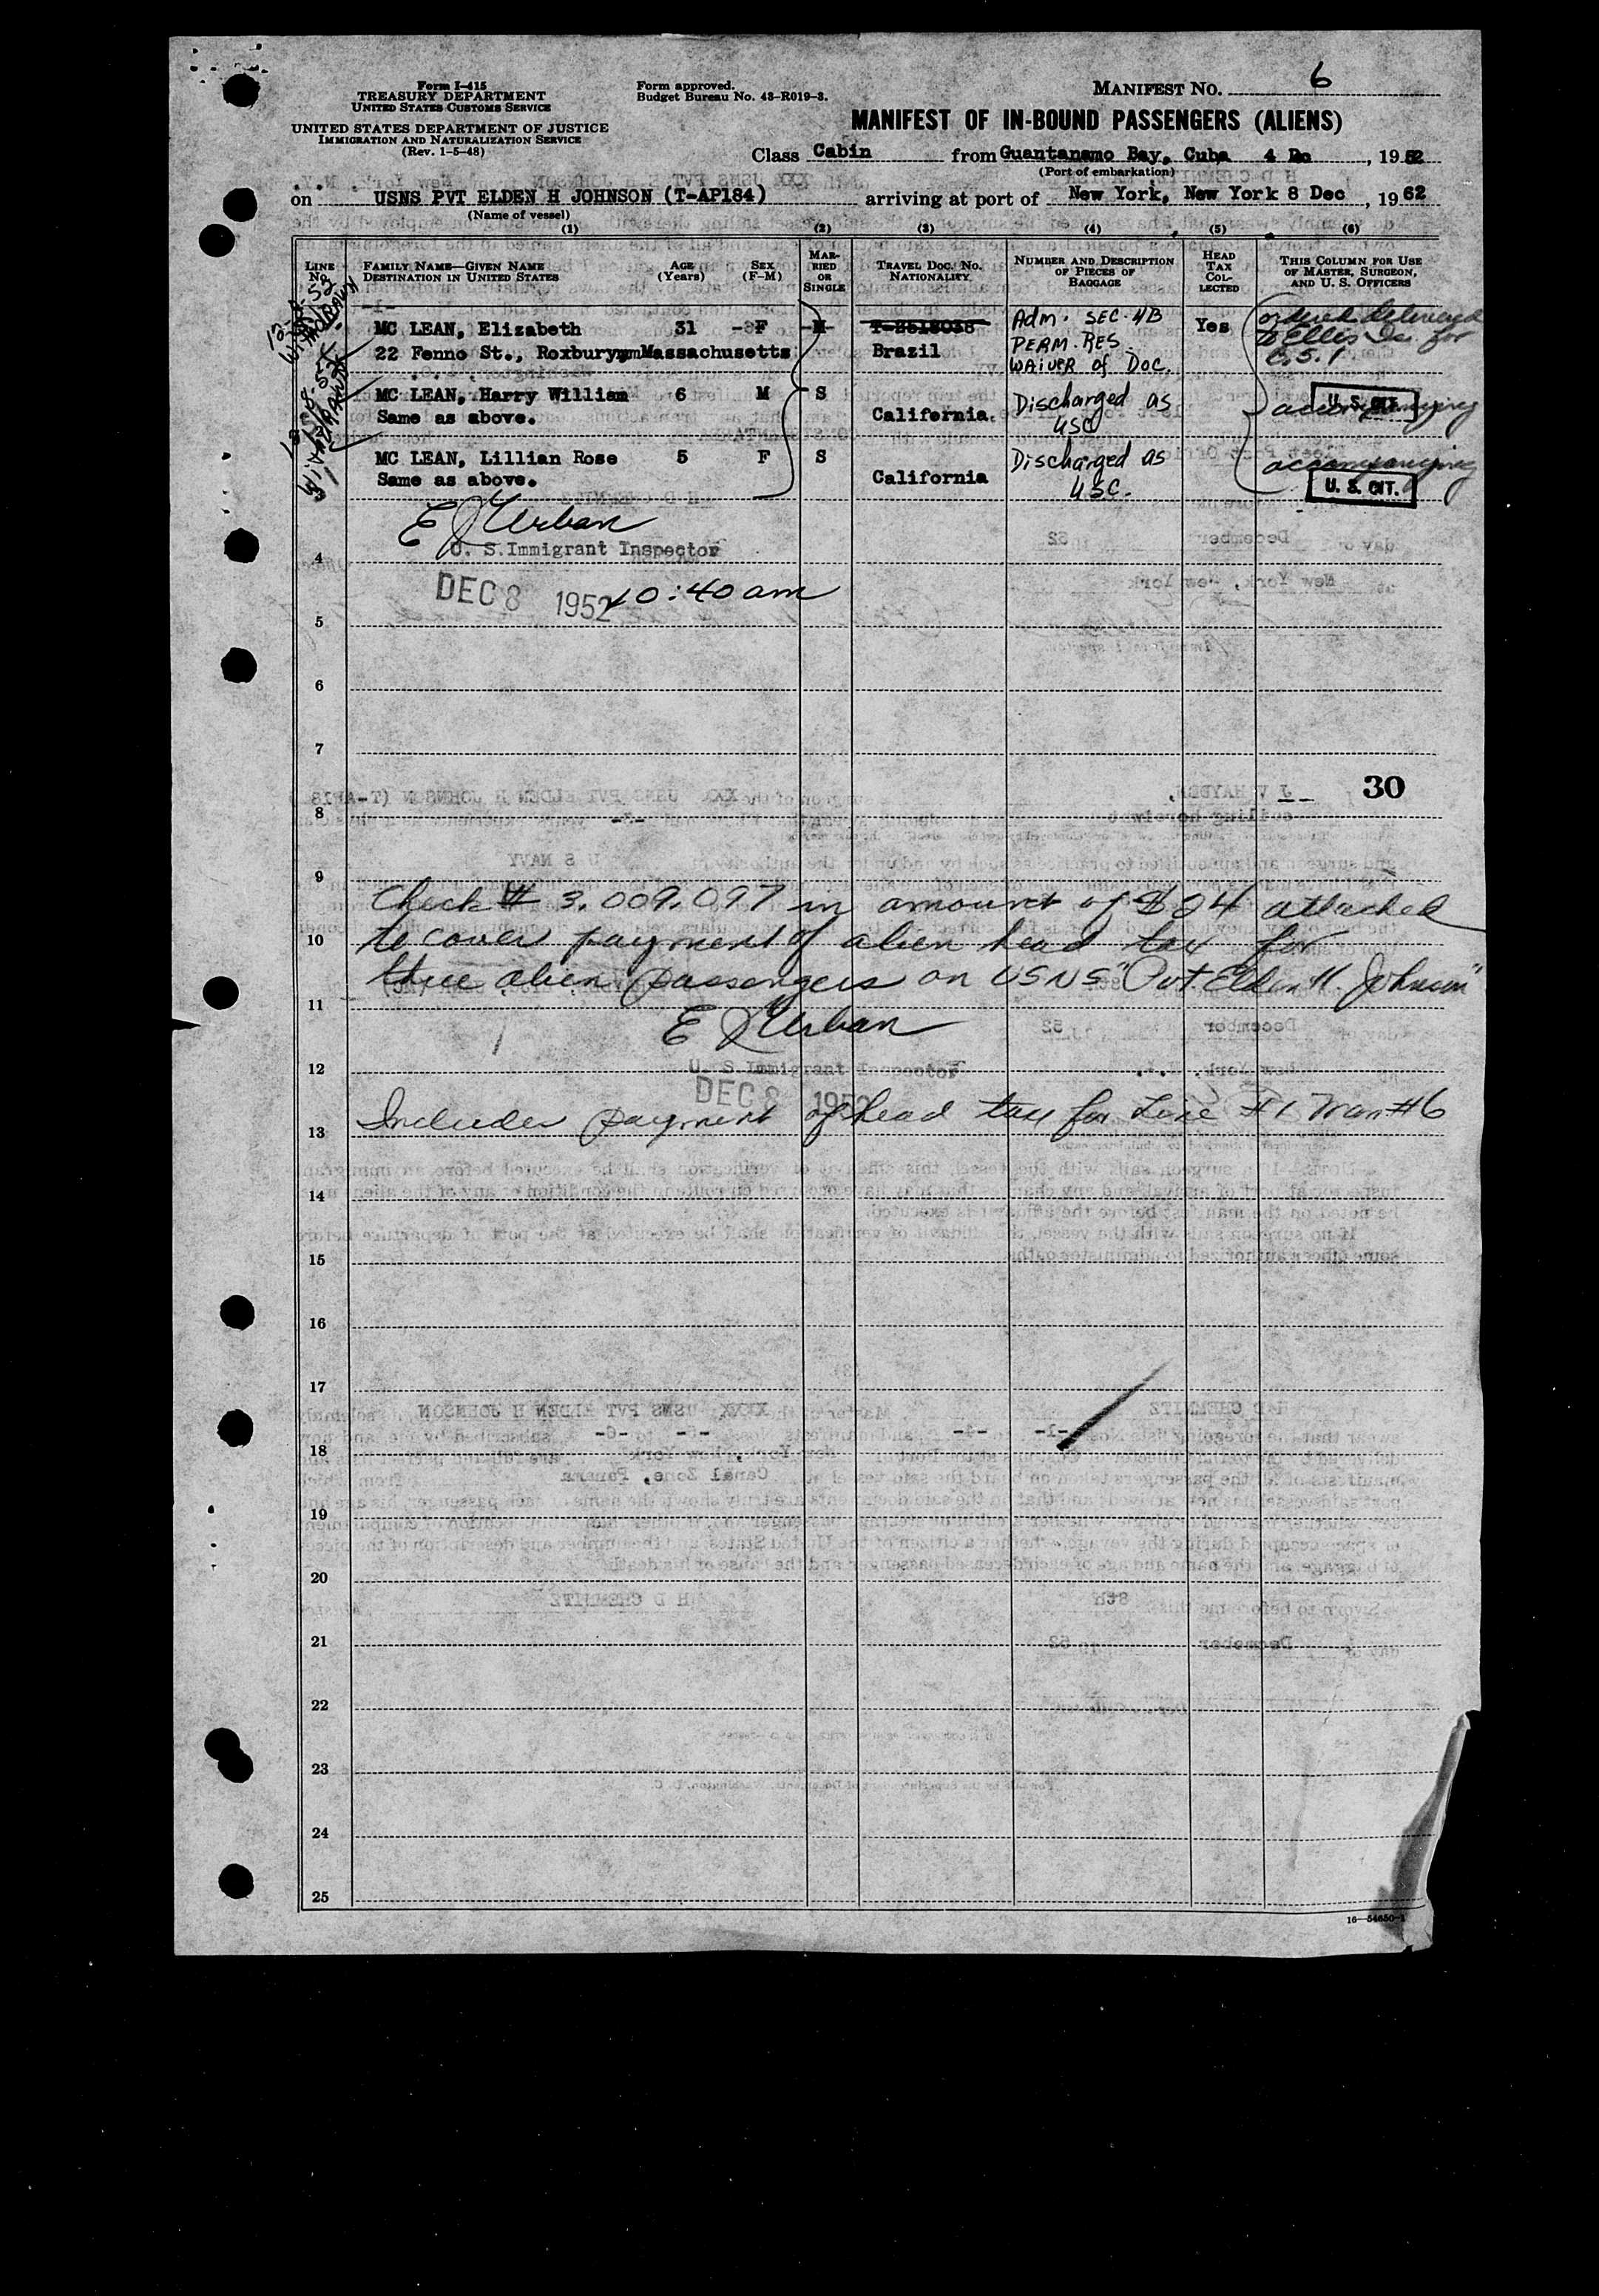 Form I-415
TREASURY DEPARTMENT
UNITED STATES CUSTOMS SERVICE
UNITED STATES DEPARTMENT OF JUSTICE
IMMIGRATION AND NATURALIZATION SERVICE
(Rev. 1-5-48)
Form approved.
Budget Bureau No. 43-R019-3.
MANIFEST NO. 6
MANIFEST OF IN-BOUND PASSENGERS (ALIENS)
Class Cabin from Guantanamo Bay, Cuba 4 De , 1952
(Port of embarkation)
on USNS PVT ELDEN H JOHNSON (T-AP184) arriving at port of New York, New York 8 Dec , 1952
(Name of vessel)
(1) (2) (3) (4) (5) (6)
LINE No.
FAMILY NAME—GIVEN NAME
DESTINATION IN UNITED STATES
AGE (Years)
SEX (F-M)
MARRIED OR SINGLE
TRAVEL DOC. NO. NATIONALITY
NUMBER AND DESCRIPTION OF PIECES OF BAGGAGE
HEAD TAX COLLECTED
THIS COLUMN FOR USE OF MASTER, SURGEON, AND U. S. OFFICERS
-1-
WITHDRAWN
MC LEAN, Elizabeth 31 F M Adm. SEC. 4B Yes ordered delivered
22 Fenno St., Roxbury Massachusetts Brazil PERM. RES. to Ellis Is. for
WAIVER of DOC.
WITHDRAWN
MC LEAN, Harry William 6 M S Discharged as accompanying
Same as above. California. USC U. S. CIT.
MC LEAN, Lillian Rose 5 F S Discharged as accompanying
Same as above. California USC. U. S. CIT.
E J Urban
U. S. Immigrant Inspector
4
DEC 8 1952 10:40 am
5
6
7
30
8
9
Check # 3,009,097 in amount of $24 attached
10
to cover payment of alien head tax for
three alien passengers on USNS "Pvt. Elden H. Johnson"
11
E J Urban
12
U. S. Immigrant Inspector
DEC 8 1952
Includes payment of head tax for Line #1 Man #6
13
14
15
16
17
18
19
20
21
22
23
24
25
16—54650-1